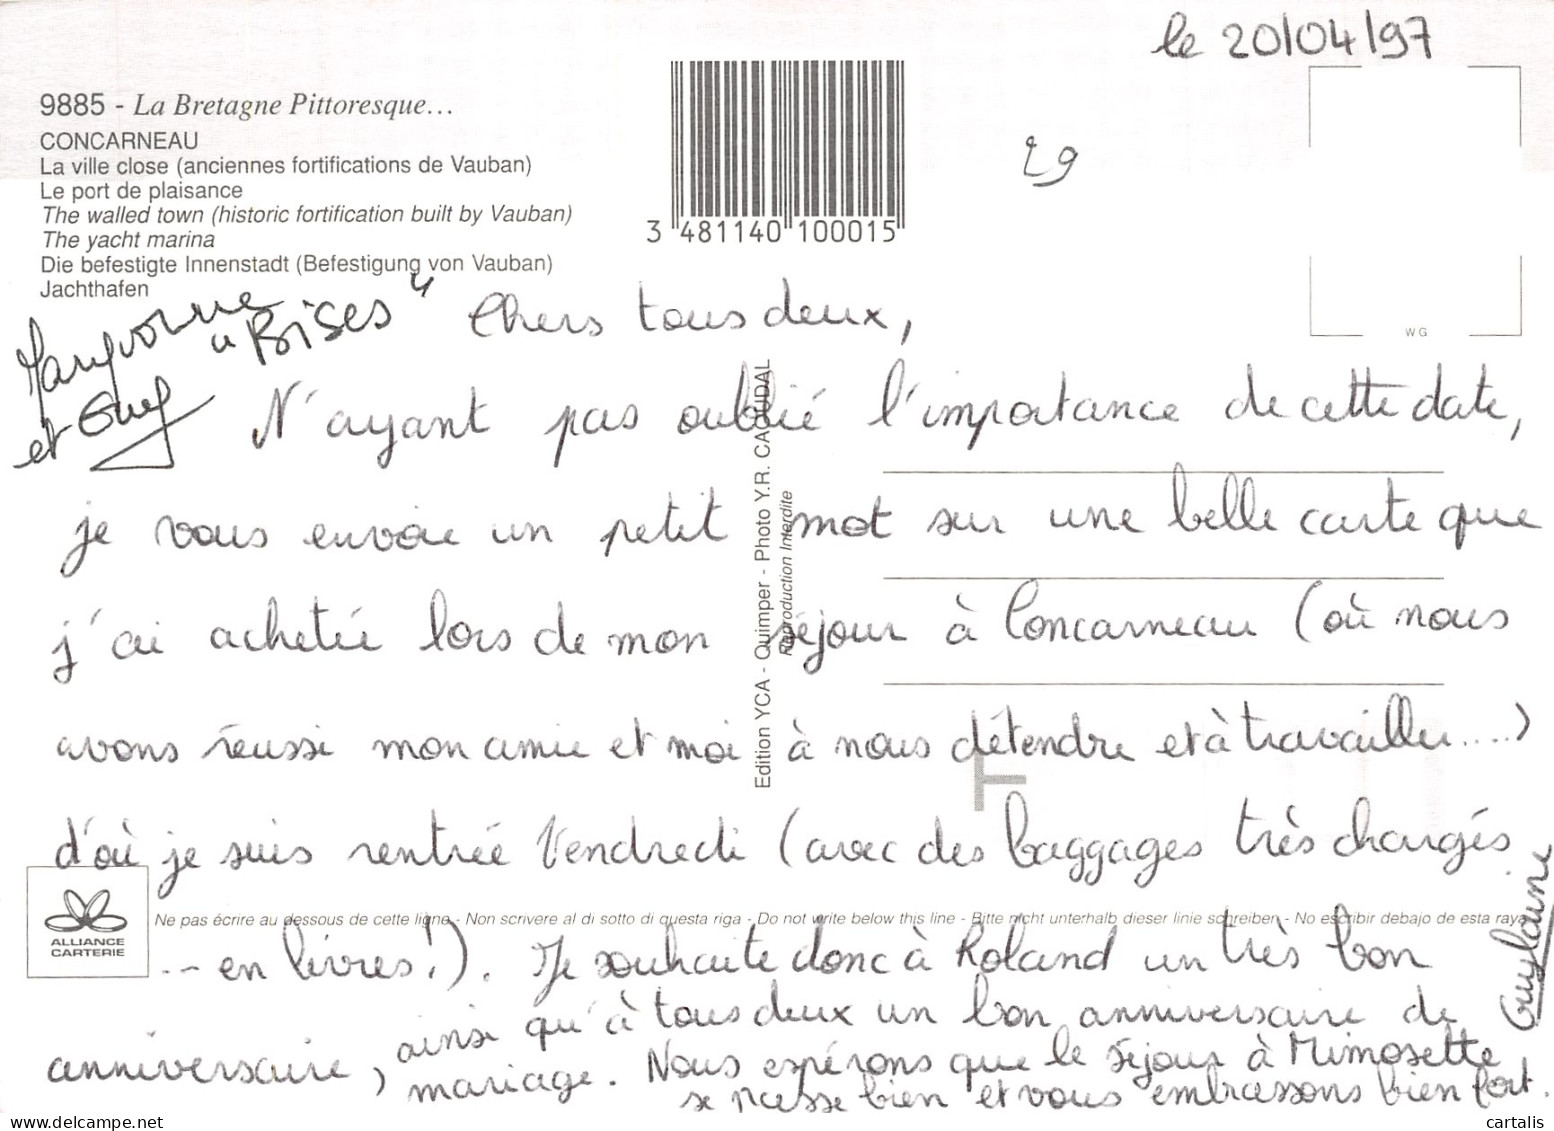 le 20/04/97
9885 - La Bretagne Pittoresque...
CONCARNEAU
La ville close (anciennes fortifications de Vauban)
Le port de plaisance
The walled town (historic fortification built by Vauban)
The yacht marina
Die befestigte Innenstadt (Befestigung von Vauban)
Jachthafen
3 481140 100015
29
WG
"Bises"
et Guy
Chers tous deux,
N'ayant pas oublié l'importance de cette date,
je vous envoie un petit mot sur une belle carte que
j'ai achetée lors de mon séjour à Concarneau (où nous
avons réussi mon amie et moi à nous détendre et à travailler....)
d'où je suis rentrée Vendredi (avec des baggages très chargés
-- en livres!). Je souhaite donc à Roland un très bon
anniversaire, ainsi qu'à tous deux un bon anniversaire de
mariage. Nous espérons que le séjour à Mimosette
se passe bien et vous embrassons bien fort.
Guylaine
Edition YCA - Quimper - Photo Y.R. CAOUDAL
Reproduction Interdite
ALLIANCE
CARTERIE
Ne pas écrire au dessous de cette ligne - Non scrivere al di sotto di questa riga - Do not write below this line - Bitte nicht unterhalb dieser linie schreiben - No escribir debajo de esta raya
delcampe.net
cartalis